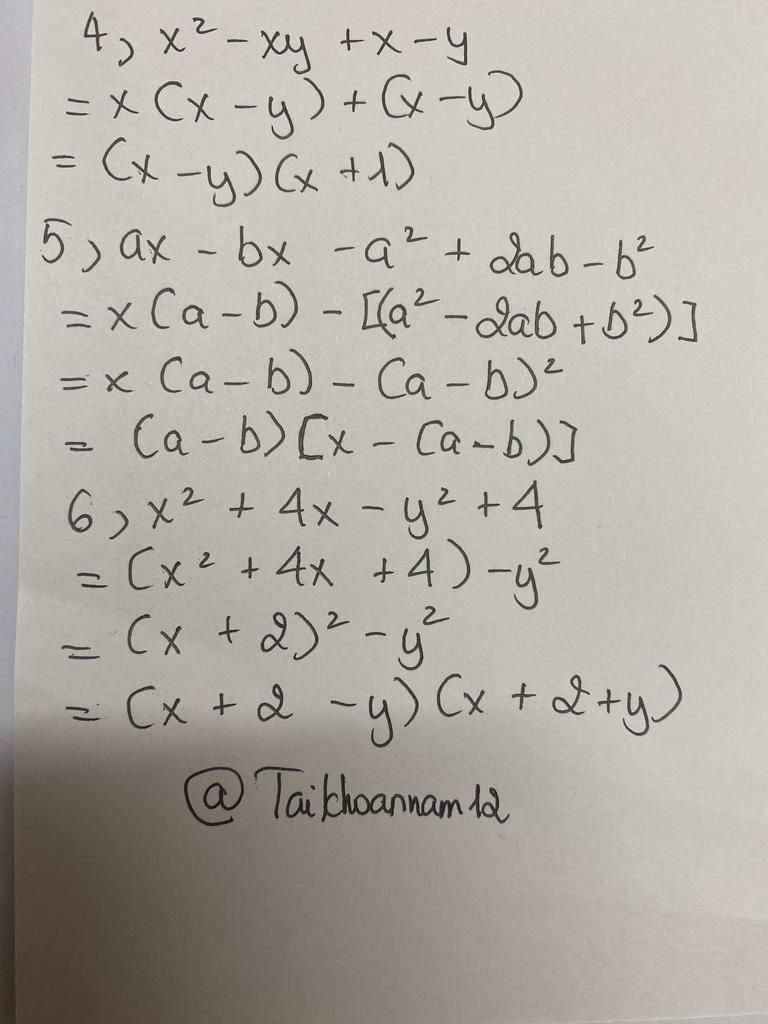 4, x² - xy + x - y
= x (x - y) + (x - y)
= (x - y) (x + 1)
5, ax - bx - a² + 2ab - b²
= x (a - b) - [(a² - 2ab + b²)]
= x (a - b) - (a - b)²
= (a - b) [x - (a - b)]
6, x² + 4x - y² + 4
= (x² + 4x + 4) - y²
= (x + 2)² - y²
= (x + 2 - y) (x + 2 + y)
@Taikhoannam12